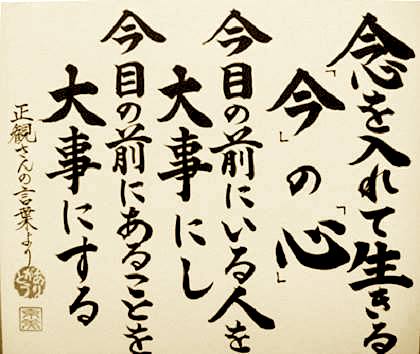 念を入れて生きる
「今」の「心」
今目の前にいる人を
大事にし
今目の前にあることを
大事にする
正観さんの言葉より